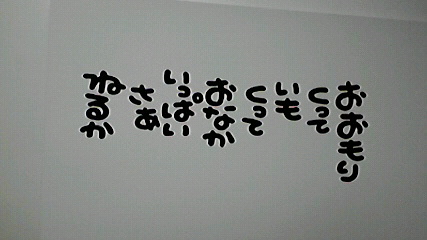 おおもり
くって
いも
くって
おなか
いっぱい
さあ
ねるか